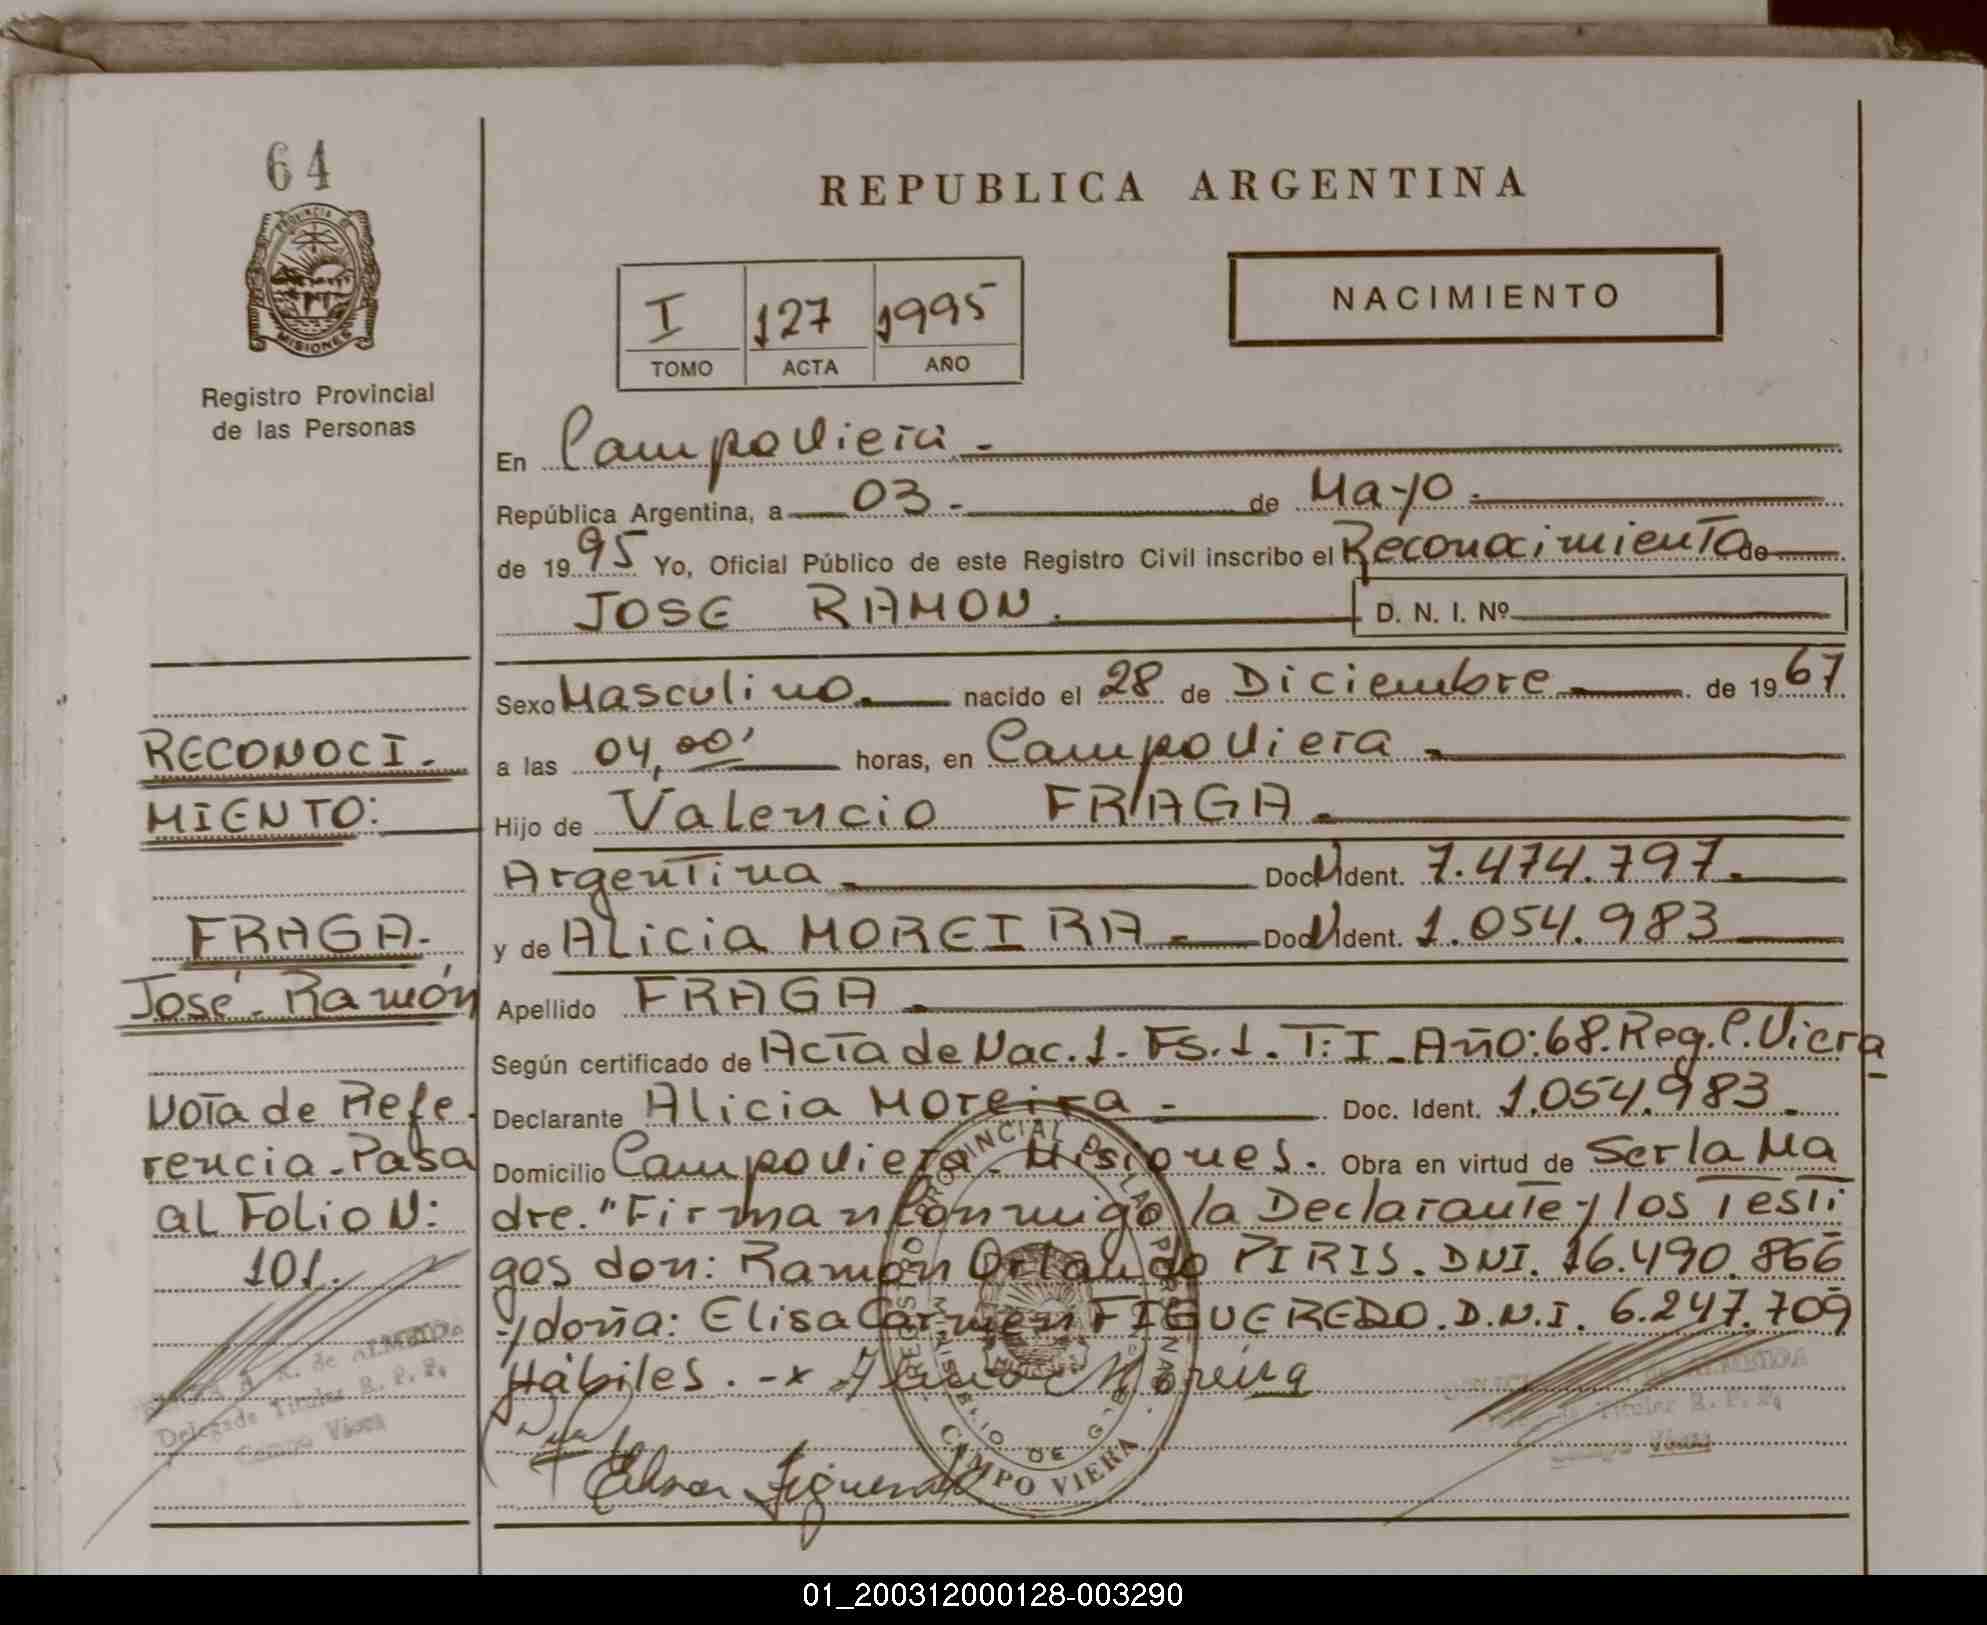 64
PROVINCIA DE
MISIONES
Registro Provincial
de las Personas
REPUBLICA ARGENTINA
NACIMIENTO
I 127 1995
TOMO ACTA AÑO
En Campo Viera -
República Argentina, a 03.- de Mayo.
de 1995 Yo, Oficial Público de este Registro Civil inscribo el Reconocimiento de
JOSE RAMON. D. N. I. Nº
Sexo Masculino. nacido el 28 de Diciembre de 1967
a las 04,00' horas, en Campo Viera -
Hijo de Valencio FRAGA.
Argentina - Doc. Ident. 7.474.797.
y de ALicia MOREIRA - Doc. Ident. 1.054.983
Apellido FRAGA
Según certificado de Acta de Nac. 1. Fs. 1. T: I - Año: 68. Reg. C. Viera
Declarante Alicia Moreira - Doc. Ident. 1.054.983.
Domicilio Campo Viera - Misiones. Obra en virtud de Ser la Ma
dre. "Firman Conmigo la Declarante y los Testi
gos don: Ramón Orlando PIRIS. DNI. 16.490.866
y doña: Elisa Carmen FIGUEREDO. D.N.I. 6.247.709
Hábiles. -x Moreira
RECONOCI-
MIENTO:
FRAGA-
José - Ramón
Nota de Refe-
rencia - Pasa
al Folio N:
101.
de ALMEIDA
Delegada Titular R. P. P.
Campo Viera
REGISTRO PROVINCIAL DE LAS PERSONAS
MINISTERIO DE GOB.
CAMPO VIERA
DE ALMEIDA
Titular R. P. P.
Campo Viera
01_200312000128-003290